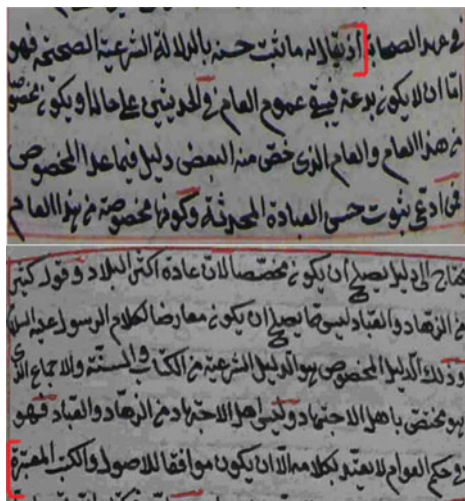 في عهد الصحابة أو يقال له ما ثبت حسنه بالدلالة الشرعية الصحيحة فهو
اما ان لا يكون بدعة فيبقى عموم العام في الحديثين على حاله او يكون مخصوصا
من هذا العام والعام الذى خص منه البعض دليل فيما عدا المخصوص
فمن ادعى ثبوت حسن العبادة المحدثة وكونها مخصوصة من هذا العام
يحتاج الى دليل يصلح ان يكون مخصصا لان عادة اكثر البلاد وقول كثير
من الزهاد والعباد ليس مما يصلح ان يكون معارضا لكلام الرسول عليه السلام
وذلك الدليل المخصوص هو الدليل الشرعية من الكتاب والسنة والاجماع الذى
هو مختص باهل الاجتهاد وليس اهل الاجتهاد من الزهاد والعباد فهو
فى حكم العوام لا يعتد بكلامه الا ان يكون موافقا للاصول والكتب المعتبرة